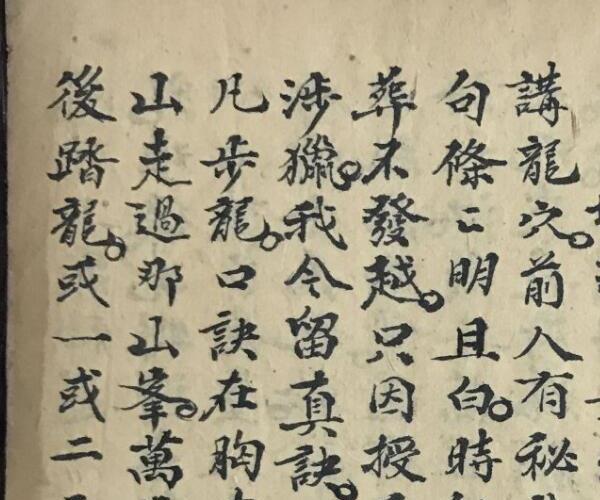 講龍穴。前人有秘
句條〻明且白。時
葬不發越。只因授
涉獵。我今留真訣。
凡步龍。口訣在胸
山走過那山峯。萬
後踏龍。或一或二